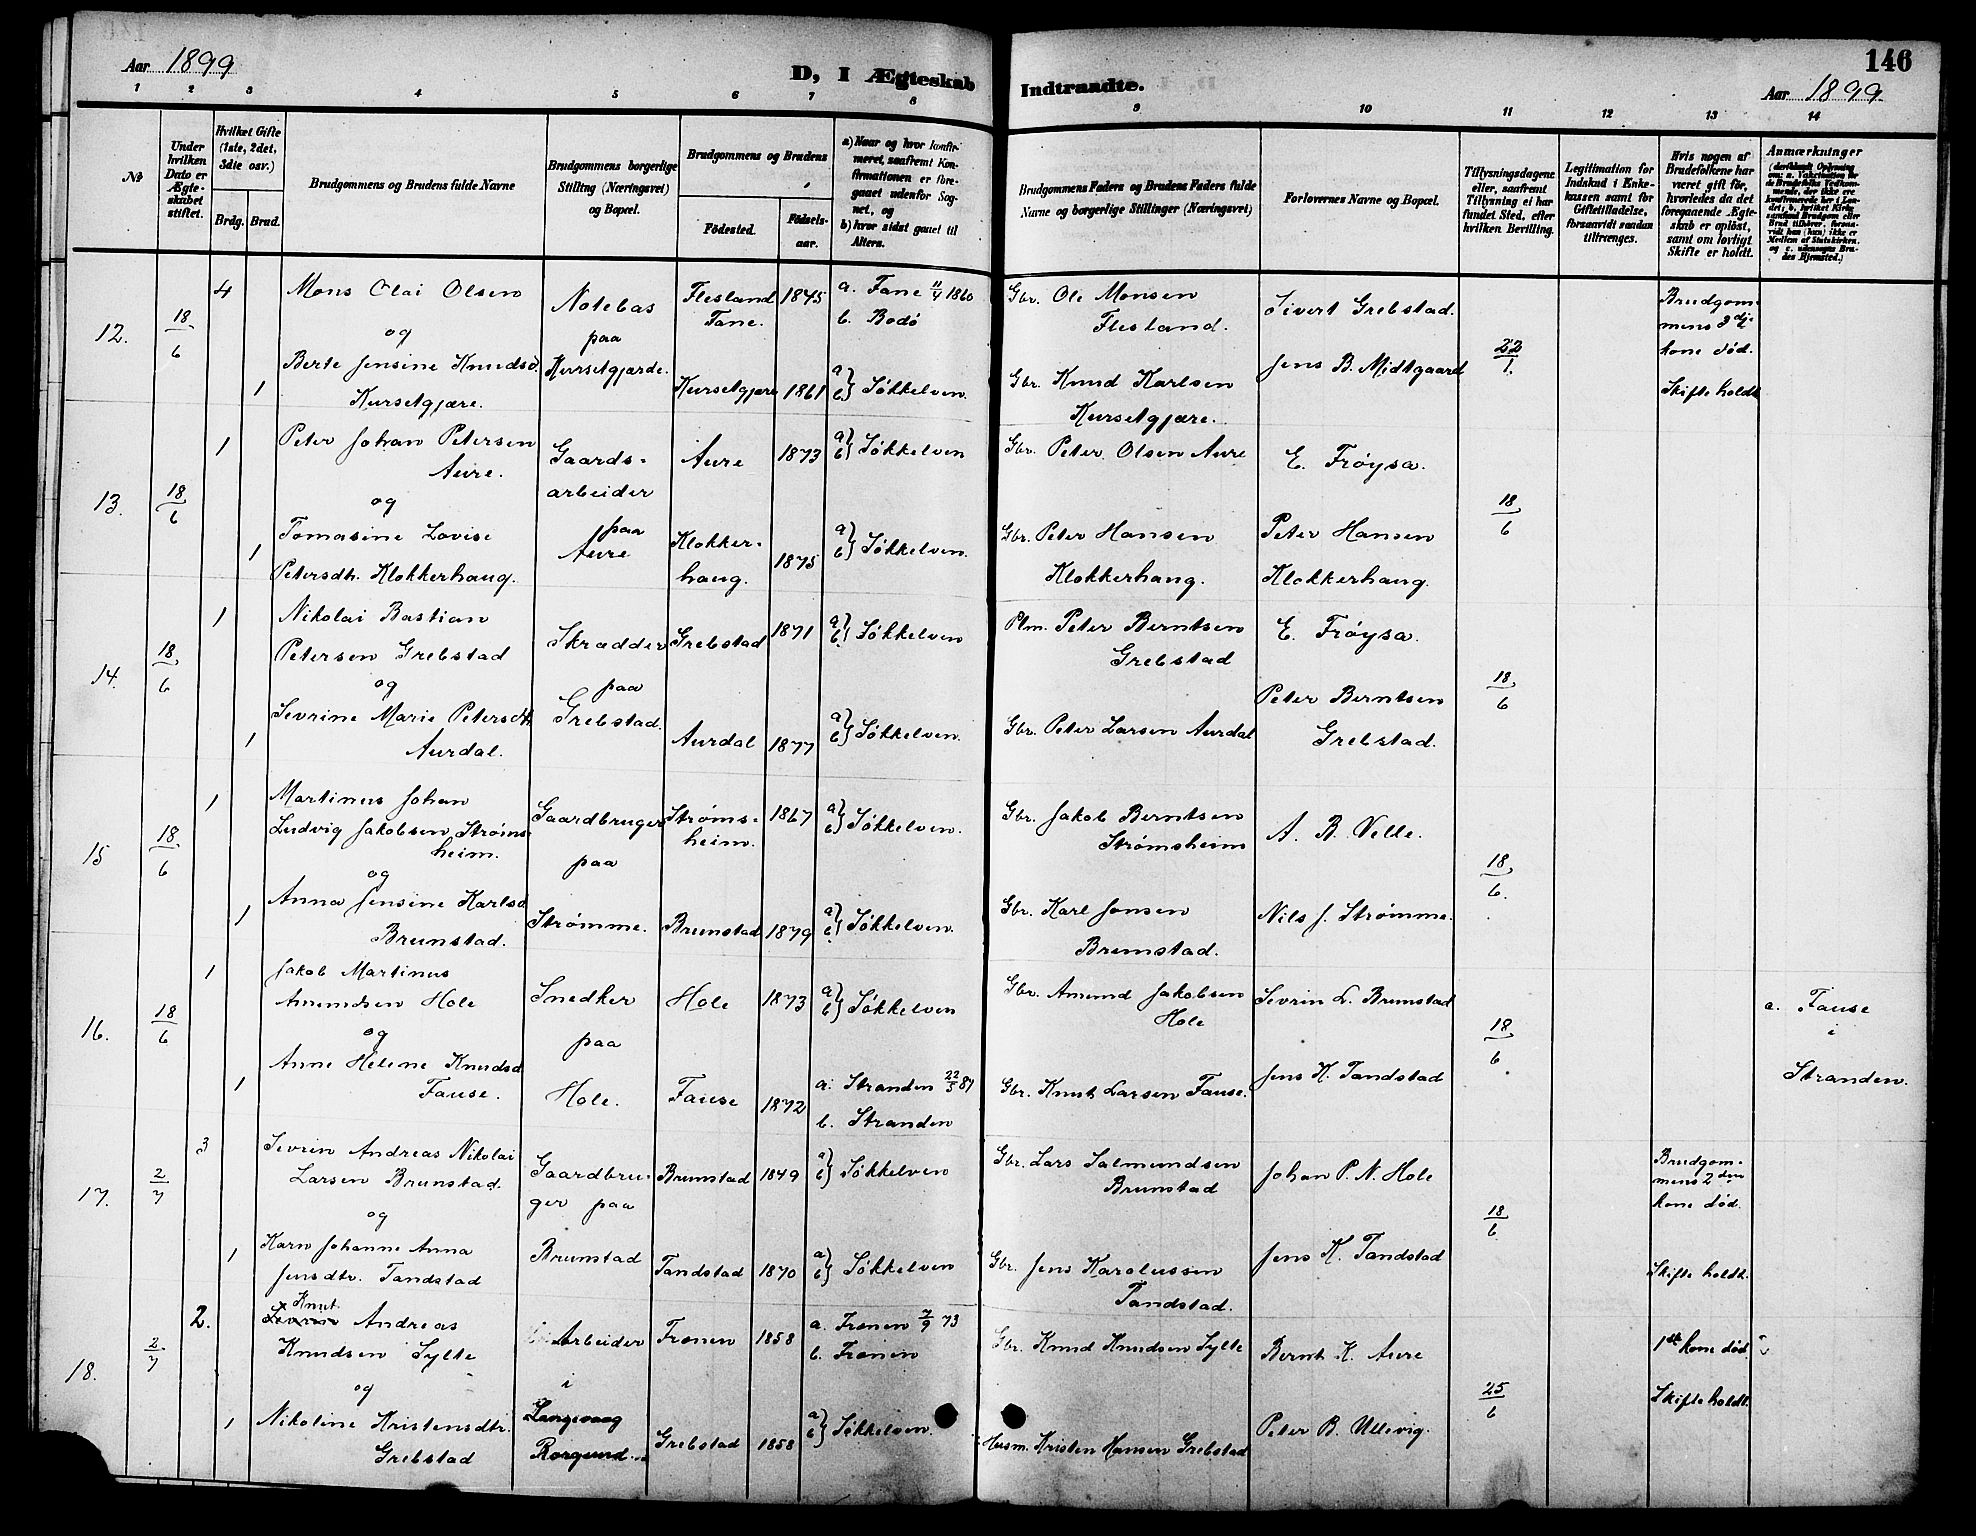 Aar 1899
D, I Ægteskab Indtraadte.
146
Aar 1899
1 2 3 4 5 6 7 8 9 10 11 12 13 14
№
Under hvilken Dato er Ægteskabet stiftet.
Hvilket Gifte (1ste, 2det, 3die osv.)
Brdg. Brud.
Brudgommens og Brudens fulde Navne
Brudgommens borgerlige Stilling (Næringsvei) og Bopæl.
Brudgommens og Brudens
Fødested. Fødselsaar.
a) Naar og hvor konfirmeret, saafremt Konfirmationen er foregaaet udenfor Sognet, og
b) hvor sidst gaaet til Alters.
Brudgommens Faders og Brudens Faders fulde Navne og borgerlige Stillinger (Næringsvei)
Forlovernes Navne og Bopæl.
Tillysningsdagene eller, saafremt Tillysning ei har fundet Sted, efter hvilken Bevilling.
Legitimation for Indskud i Enkekassen samt for Giftetilladelse, forsaavidt saadan tiltrænges.
Hvis nogen af Brudefolkene har været gift før, hvorledes da det foregaaende Ægteskab er opløst, samt om lovligt Skifte er holdt.
Anmærkninger
12. 18/6 4 Mons Olai Olsen Notebas Flesland 1845 a. Fane 11/4 1860 Gbr. Ole Monsen Sivert Grebstad. 22/1. Brudgom-
og paa Fane. b. Bodø Flesland. mens 3dje
Berte Jensine Knudsd. Kursetgjærde. kone død.
1 Kursetgjære. Kursetgjære 1861 a b } Søkkelven. Gbr. Knud Karlsen Jens B. Midtgaard Skifte holdt
Kursetgjære.
13. 18/6 1 Peter Johan Petersen Gaards- Aure 1873 a b } Søkkelven Gbr. Peter Olsen Aure E. Frøysa. 18/6
Aure. arbeider
og paa
1 Tomasine Lovise Aure Klokker- 1875 a b } Søkkelven. Gbr. Peter Hansen Peter Hansen
Petersdh. Klokkerhaug. haug. Klokkerhaug. Klokkerhaug.
14. 18/6 1 Nikolai Bastian Skrædder Grebstad 1871 a b } Søkkelven Plm. Peter Berntsen E. Frøysa. 18/6
Petersen Grebstad Grebstad
og paa Peter Berntsen
1 Sevrine Marie Petersdtr Grebstad. Aurdal 1877 a b } Søkkelven. Gbr. Peter Larsen Aurdal Grebstad.
Aurdal.
15 18/6 1 Martinus Johan Gaardbruger Strøms- 1867 a b } Søkkelven. Gbr. Jakob Berntsen A. B. Velle. 18/6.
Ludvig Jakobsen Strøms- heim. Strømsheim
heim. paa
og
1 Anna Jensine Karlsd. Strømme. Brunstad 1879 a b } Søkkelven. Gbr. Karl Jonsen Nils J. Strømme.
Brunstad. Brunstad.
16. 18/6 1 Jakob Martinus Snedker Hole 1873 a b } Søkkelven Gbr. Amund Jakobsen Sevrin L. Brunstad 18/6 a. Fause
Amundsen Hole Hole i
og paa Stranden.
1 Anne Helene Knudsd Hole. Fause 1872 a. Stranden 22/5 87 Gbr. Knut Larsen Fause. Jens K. Tandstad
Fause. b. Stranden
17. 2/7 3 Sevrin Andreas Nikolai Gaardbru- Brunstad 1849 a b } Søkkelven Gbr. Lars Salmundsen Johan P. N. Hole 18/6 Brudgom-
Larsen Brunstad. ger paa Brunstad mens 2den
og kone død.
1 Karn Johanne Anna Brunstad Tandstad 1870 a b } Søkkelven Gbr. Jens Karolussen Jens K. Tandstad Skifte holdt.
Jensdtr. Tandstad Tandstad.
18. 2/7 2. Knut Andreas Arbeider Fronen 1858 a. Fronen 7/9 73 Gbr. Knud Knudsen Sylte Bernt K. Aure 25/6 1ste kone død.
Knudsen Sylte b. Fronen
og i Skifte holdt.
1 Nikoline Kristensdtr. Langevaag Grebstad 1858 a b } Søkkelven. Husm. Kristen Hansen Grebstad Peter B. Ullevig.
Grebstad Borgund.